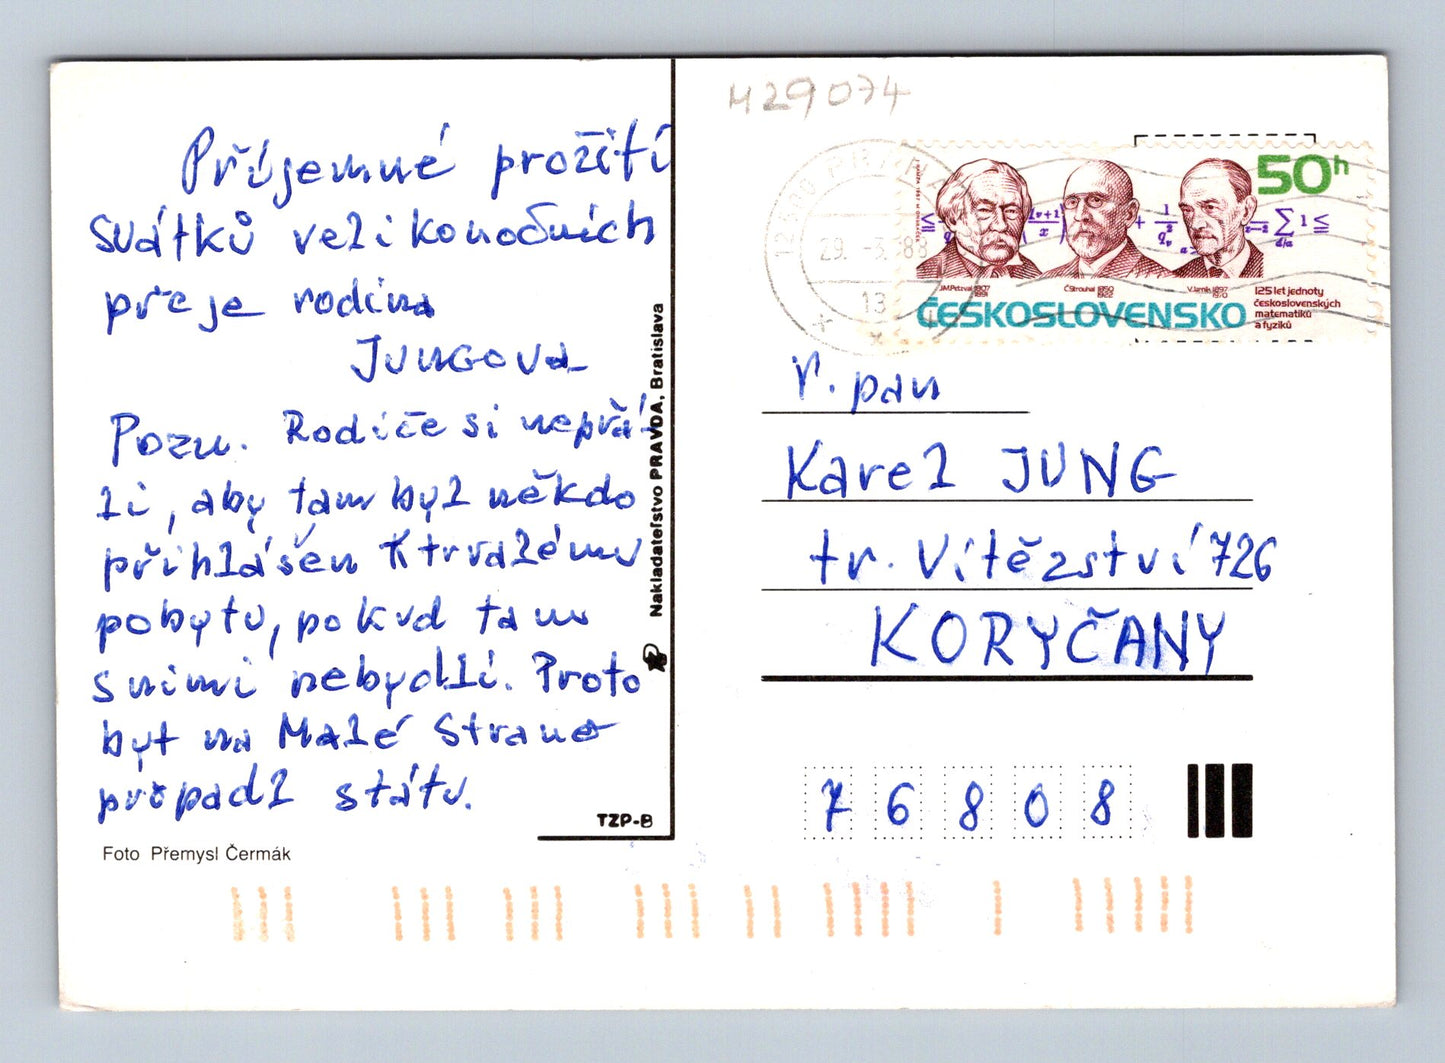 Příjemné prožití
svátků velikonočních
přeje rodina
Jungova
Pozn. Rodiče si nepřá-
li, aby tam byl někdo
přihlášen k trvalému
pobytu, pokud tam
s nimi nebydlí. Proto
byt na Malé Straně
propadl státu.
Foto Přemysl Čermák
TZP-B
Nakladateľstvo PRAVDA, Bratislava
M29074
29. -3. 88
13
50h
J.M.Petzval 1807
1891
Č.Strouhal 1850
1922
V.Jarník 1897
1970
ČESKOSLOVENSKO
125 let jednoty
československých
matematiků
a fyziků
V. pan
Karel JUNG
tr. Vítězství 726
KORYČANY
76808